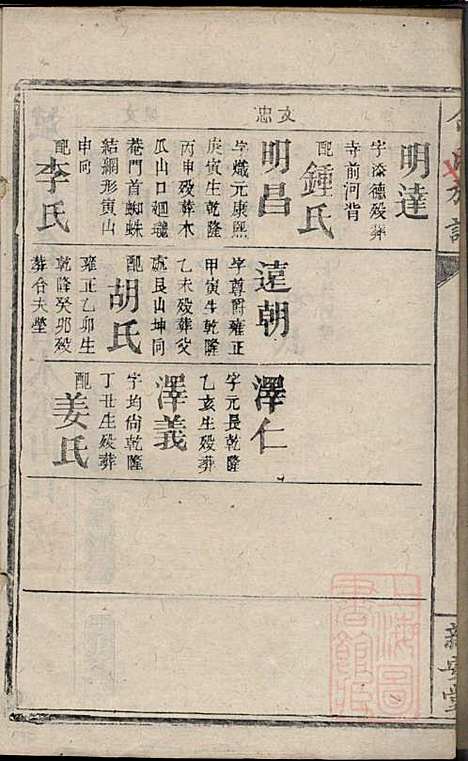 明達
字添德殁葬
寺前河背
配
鍾氏
文忠
明昌
字熾元康熙
庚寅生乾隆
丙申殁葬木
瓜山口迴龍
菴門首蜘蛛
結網形寅山
申向
配
李氏
遠朝
字尊爵雍正
甲寅生乾隆
乙未殁葬父
處艮山坤同
配
胡氏
雍正乙卯生
乾隆癸卯殁
葬合夫塋
澤仁
字元長乾隆
乙亥生殁葬
澤義
字均尙乾隆
丁丑生殁葬
配
姜氏
族譜
上海圖
書館藏